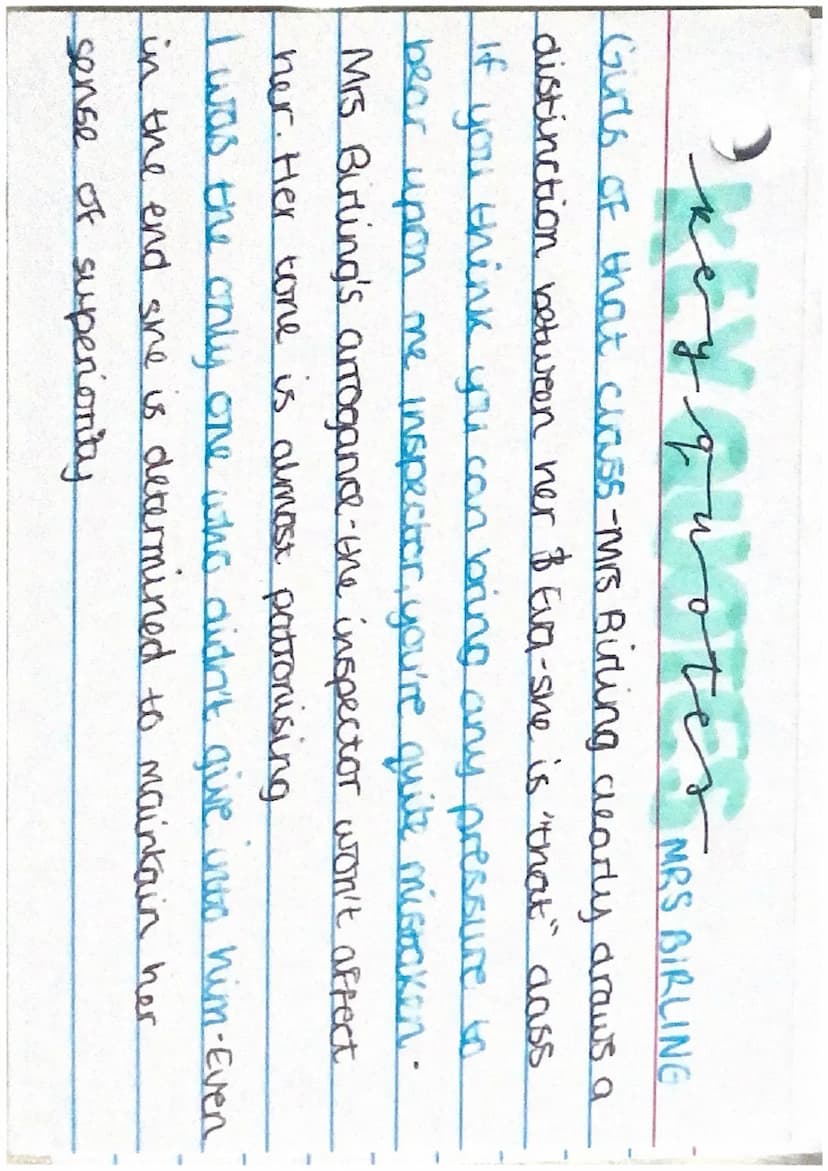 KEY QUOTES
key quotes MRS BIRLING
Girls of that class - Mrs Birling clearly draws a
distinction between her & Eva - she is "that" class
If you think you can bring any pressure to
bear upon me inspector, you're quite mistaken.
Mrs Birling's arrogance - the inspector won't affect
her. Her tone is almost patronising
I was the only one who didn't give into him - Even
in the end she is determined to maintain her
sense of superiority